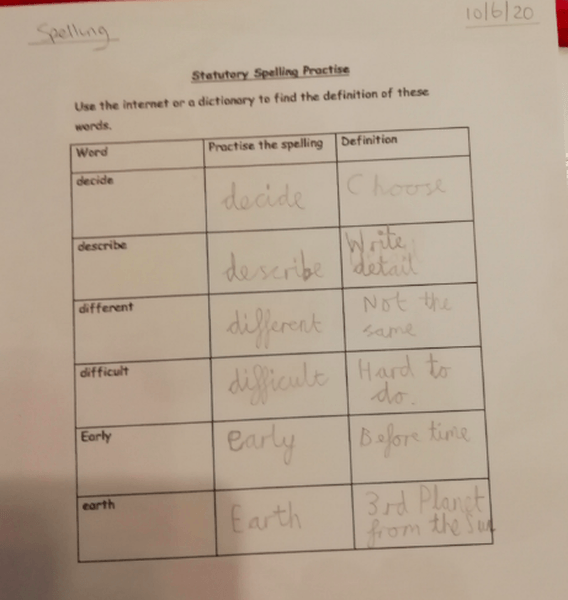 10/6/20
Spelling
Statutory Spelling Practise
Use the internet or a dictionary to find the definition of these
words.
Word Practise the spelling Definition
decide decide Choose
describe describe Write
detail
different different Not the
same
difficult difficult Hard to
do.
Early early Before time
earth Earth 3rd Planet
from the Sun